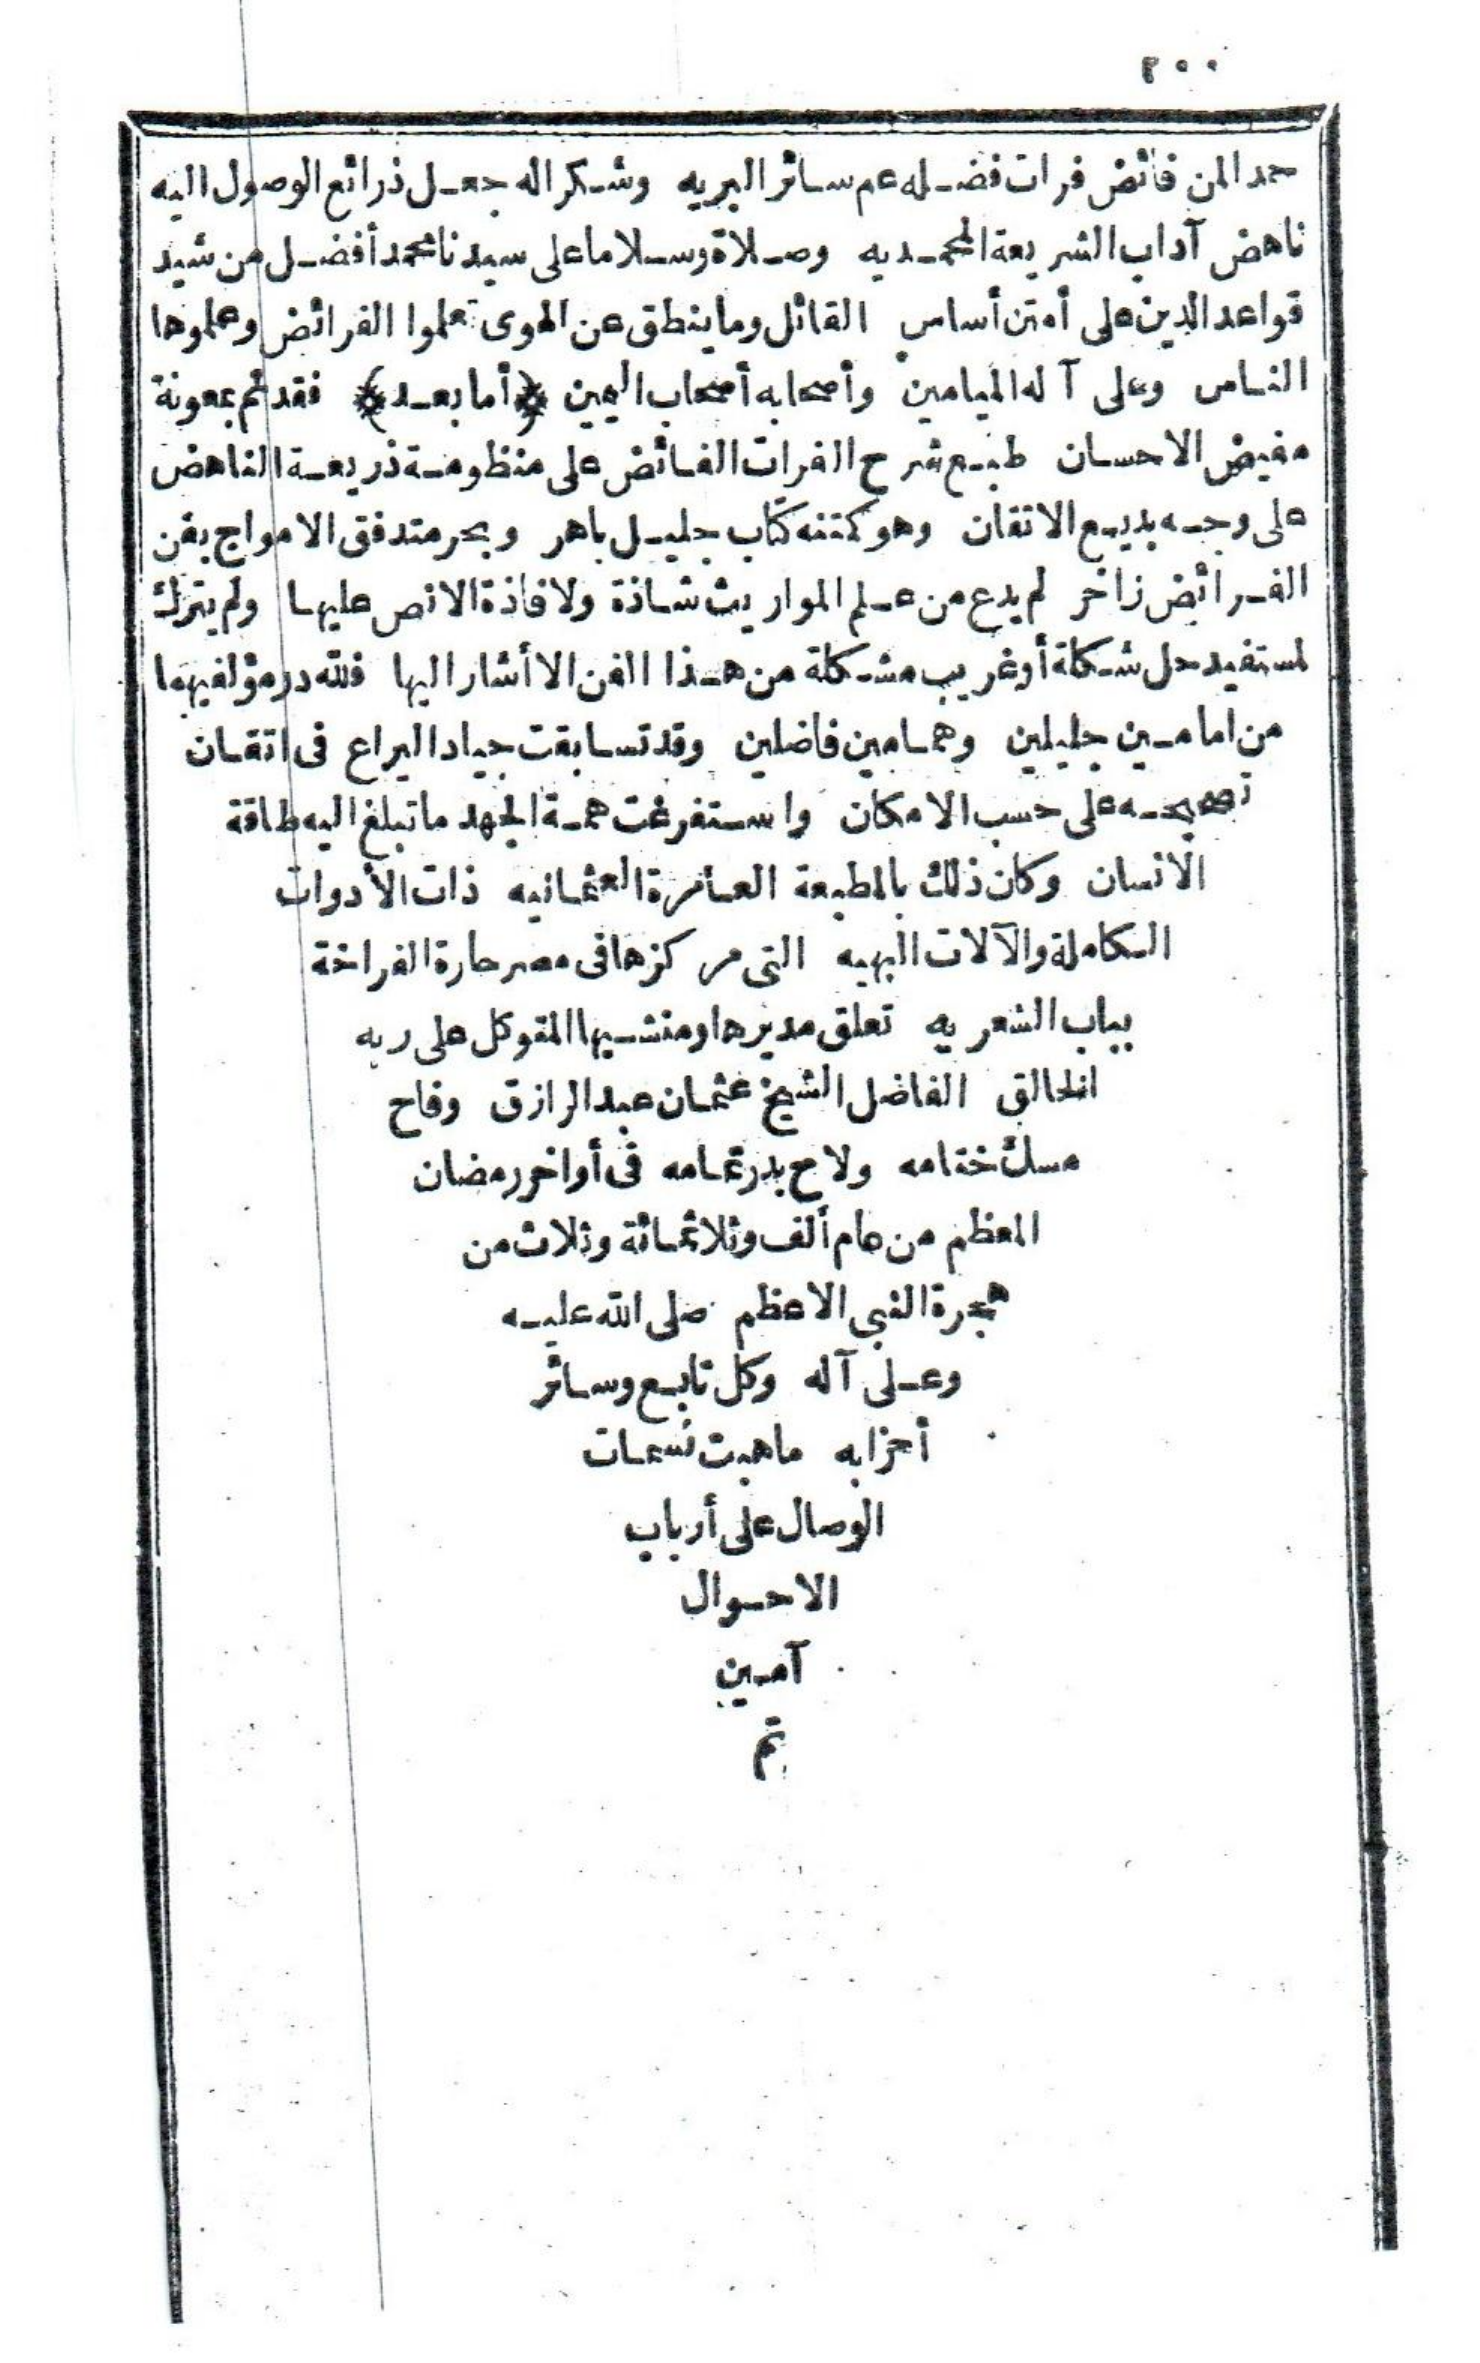 ٢٠٠
حمدا لمن فائض فرات فضله عم سائر البريه وشكرا له جعل ذرائع الوصول اليه
ناهض آداب الشريعة المحمديه وصلاة وسلاما على سيدنا محمد أفضل من شيد
قواعد الدين على أمتن أساس القائل وما ينطق عن الهوى تعلموا الفرائض وعلموها
الناس وعلى آله الميامين وأصحابه أصحاب اليمين ﴿أما بعد﴾ فقد تم بمعونة
مفيض الاحسان طبع شرح الفرات الفائض على منظومة ذريعة الناهض
على وجه بديع الاتقان وهو كمتنه كتاب جليل باهر وبحر متدفق الامواج بفن
الفرائض زاخر لم يدع من علم المواريث شاذة ولا فاذة الا نص عليها ولم يترك
لمستفيد حل شكلة أو غريب مشكلة من هذا الفن الا أشار اليها فلله در مؤلفيهما
من امامين جليلين وهمامين فاضلين وقد تسابقت جياد اليراع فى اتقان
تصحيحه على حسب الامكان واستفرغت همة الجهد ما تبلغ اليه طاقة
الانسان وكان ذلك بالمطبعة العامرة العثمانيه ذات الأدوات
الكاملة والآلات البهيه التى مركزها فى مصر حارة الفراخة
بباب الشعريه تعلق مديرها ومنشيها المتوكل على ربه
الخالق الفاضل الشيخ عثمان عبد الرازق وفاح
مسك ختامه ولاح بدر تمامه فى أواخر رمضان
المعظم من عام ألف وثلاثمائة وثلاث من
هجرة النبى الاعظم صلى الله عليه
وعلى آله وكل تابع وسائر
أحزابه ما هبت نسمات
الوصال على أرباب
الاحوال
آمين
تم